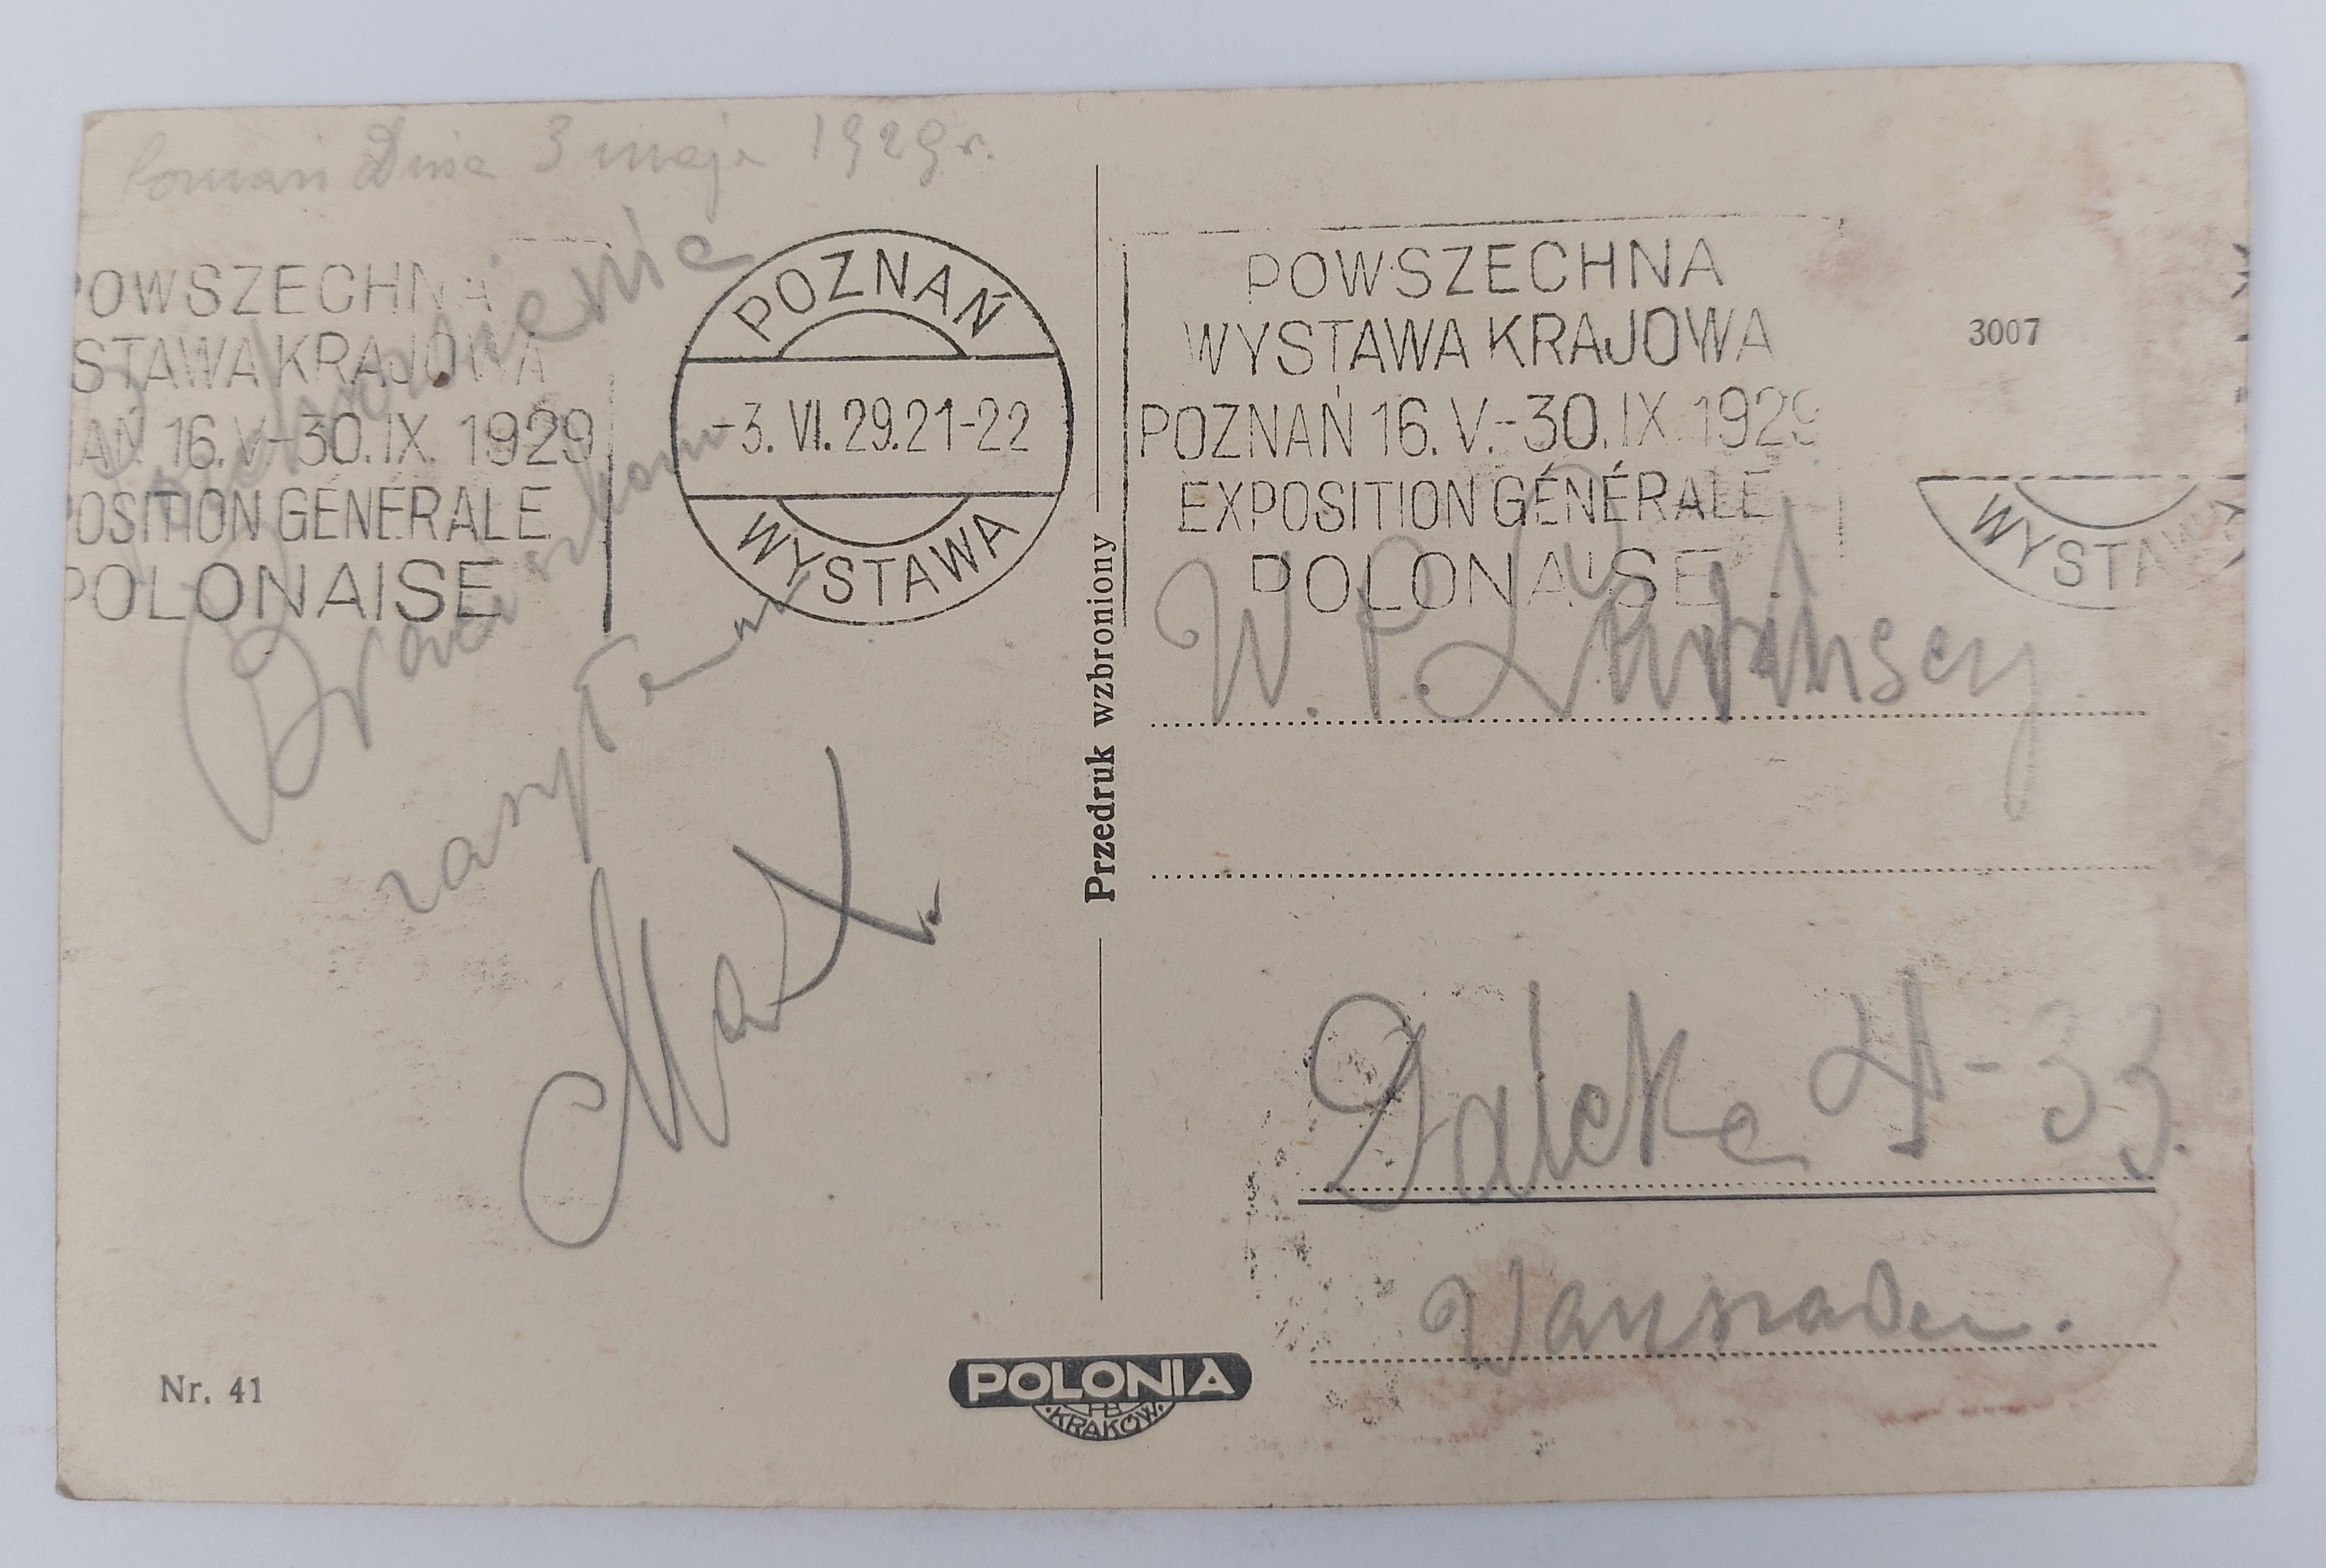 Poznań Dnia 3 maja 1929 r.
POWSZECHNA
STAWA KRAJOWA
AŃ 16.V.-30.IX. 1929
POSITION GÉNÉRALE
POLONAISE
POZNAŃ
-3. VI. 29.21-22
WYSTAWA
Pozdrowienie
zasyła
Max
Nr. 41
Przedruk wzbroniony
POWSZECHNA
WYSTAWA KRAJOWA
POZNAŃ 16. V.-30. IX. 1929
EXPOSITION GÉNÉRALE
POLONAISE
3007
WYSTAWA
W. P.
Daleka 4-33.
Warszawa.
POLONIA
KRAKÓW